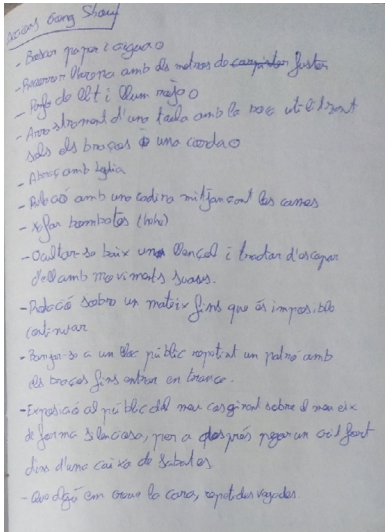 Accions Gang Show
- Buscar paper i aigua o
- Recorrer l'arena amb els metres de carpinter fuster
- Pinfo de llit i llum roja o
- Arrossatrament d'una taula amb la boca utilitzant
sols els braços o una corda o
- Abraç amb lejia
- Relació amb una cadira mitjançant les cames
- Xofar bombetes (hoho)
- Ocultar-se baix un llençol i tractar d'escapar
d'ell amb moviments suaus.
- Rotació sobre un mateix fins que és impossible
continuar
- Posar-se a un lloc públic repetint un patró amb
els braços fins entrar en trance.
- Exposició al públic del meu cos girant sobre el meu eix
de forma silenciosa, per a després pegar un crit fort
dins d'una caixa de sabates
- que algú em crue la cara, repetides vegades